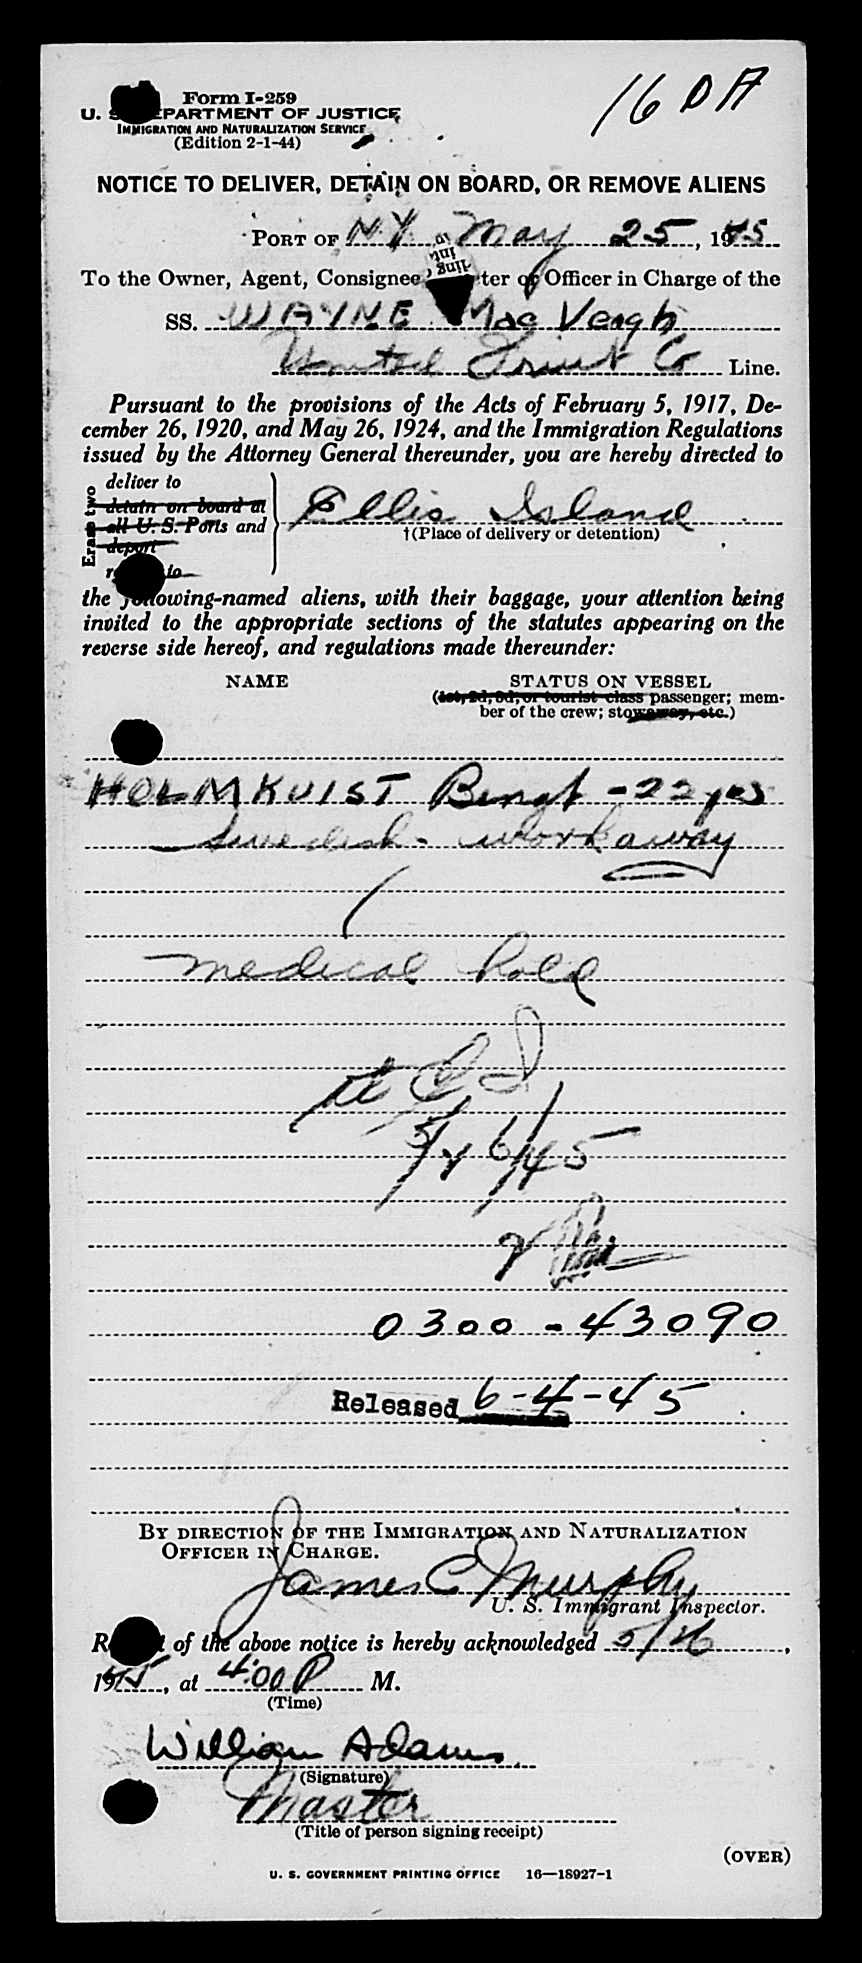 16 DA
Form I-259
U. S. DEPARTMENT OF JUSTICE
IMMIGRATION AND NATURALIZATION SERVICE
(Edition 2-1-44)
NOTICE TO DELIVER, DETAIN ON BOARD, OR REMOVE ALIENS
PORT OF N.Y. May 25, 1945
To the Owner, Agent, Consignee, Master or Officer in Charge of the
SS. WAYNE Mac Veagh
United Fruit Co Line.
Pursuant to the provisions of the Acts of February 5, 1917, De-
cember 26, 1920, and May 26, 1924, and the Immigration Regulations
issued by the Attorney General thereunder, you are hereby directed to
Erase two
deliver to
detain on board at
all U. S. Ports and
deport
to
Ellis Island
†(Place of delivery or detention)
the following-named aliens, with their baggage, your attention being
invited to the appropriate sections of the statutes appearing on the
reverse side hereof, and regulations made thereunder:
NAME STATUS ON VESSEL
(1st, 2d, 3d, or tourist class passenger; mem-
ber of the crew; stowaway, etc.)
HOLMKVIST Bengt - 22 yrs
Swedish - workaway
medical hold
5/26/45
0300 - 43090
Released 6-4-45
BY DIRECTION OF THE IMMIGRATION AND NATURALIZATION
OFFICER IN CHARGE.
James C Murphy
U. S. Immigrant Inspector.
Receipt of the above notice is hereby acknowledged 5/26,
1945, at 4:00 P M.
(Time)
William Adams
(Signature)
Master
(Title of person signing receipt)
(OVER)
U. S. GOVERNMENT PRINTING OFFICE 16—18927-1